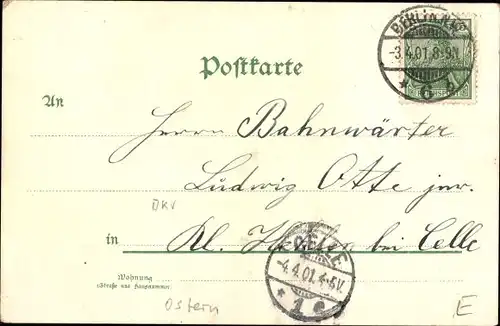 BERLIN N.W.
-3.4.01.8-9N.
* 6 b.
Postkarte
An
Herrn Bahnwärter
Ludwig Otte jun.
BKV
in Kl. bei Celle
CELLE
-4.4.01.4-5V.
* 1 c
Wohnung
(Straße und Hausnummer)
Ostern
E